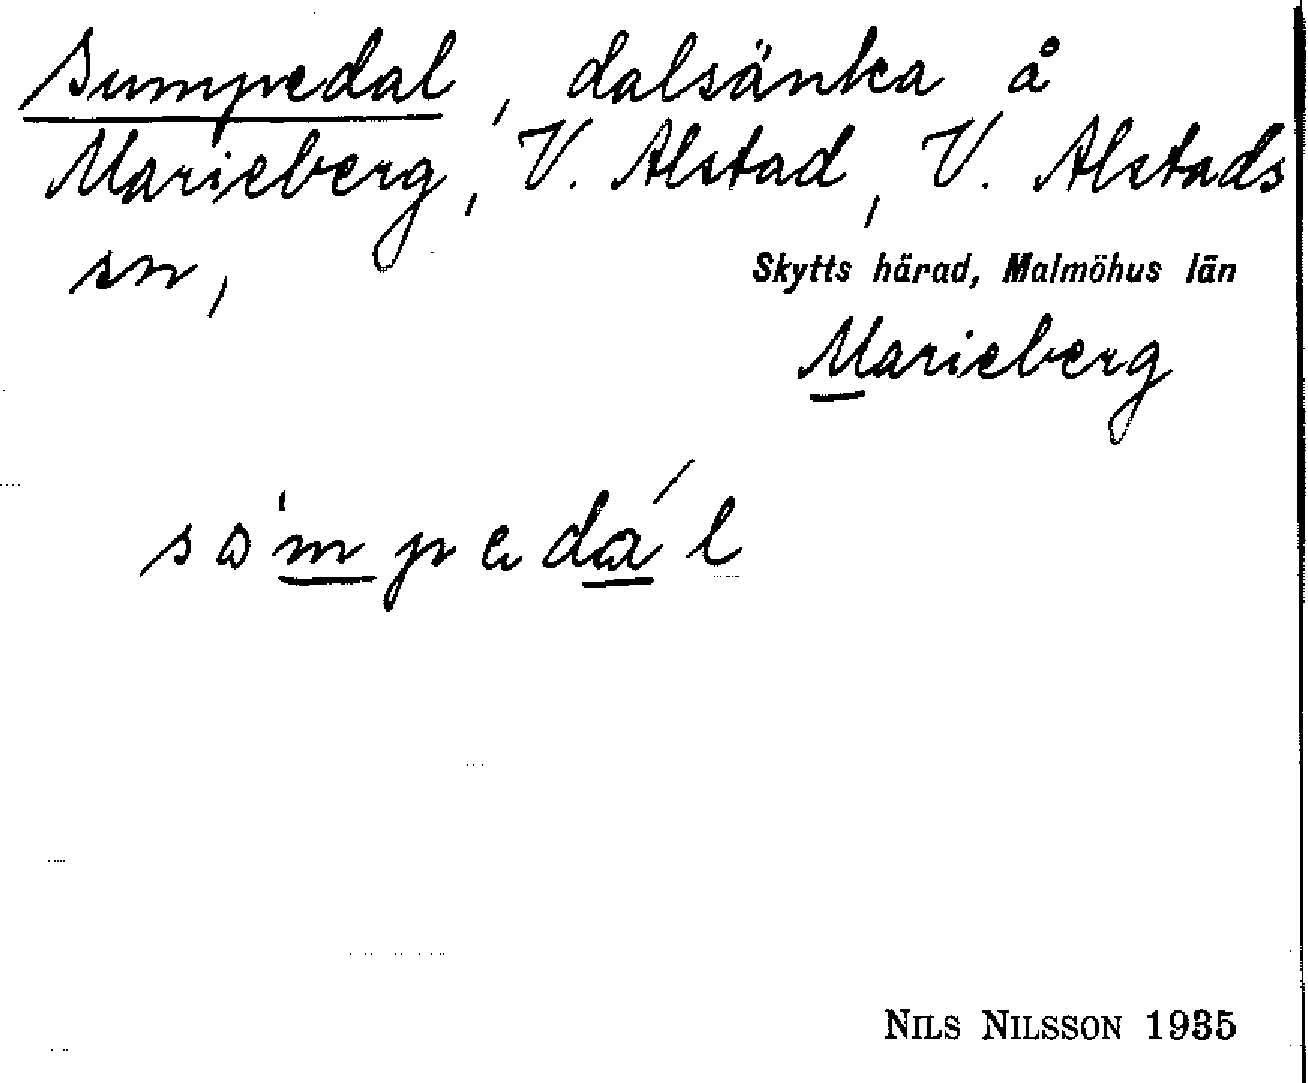 Sumpedal, dalsänka å
Marieberg, V. Alstad, V. Alstads
sn,
Skytts härad, Malmöhus län
Marieberg
so'mpedá'l
NILS NILSSON 1935